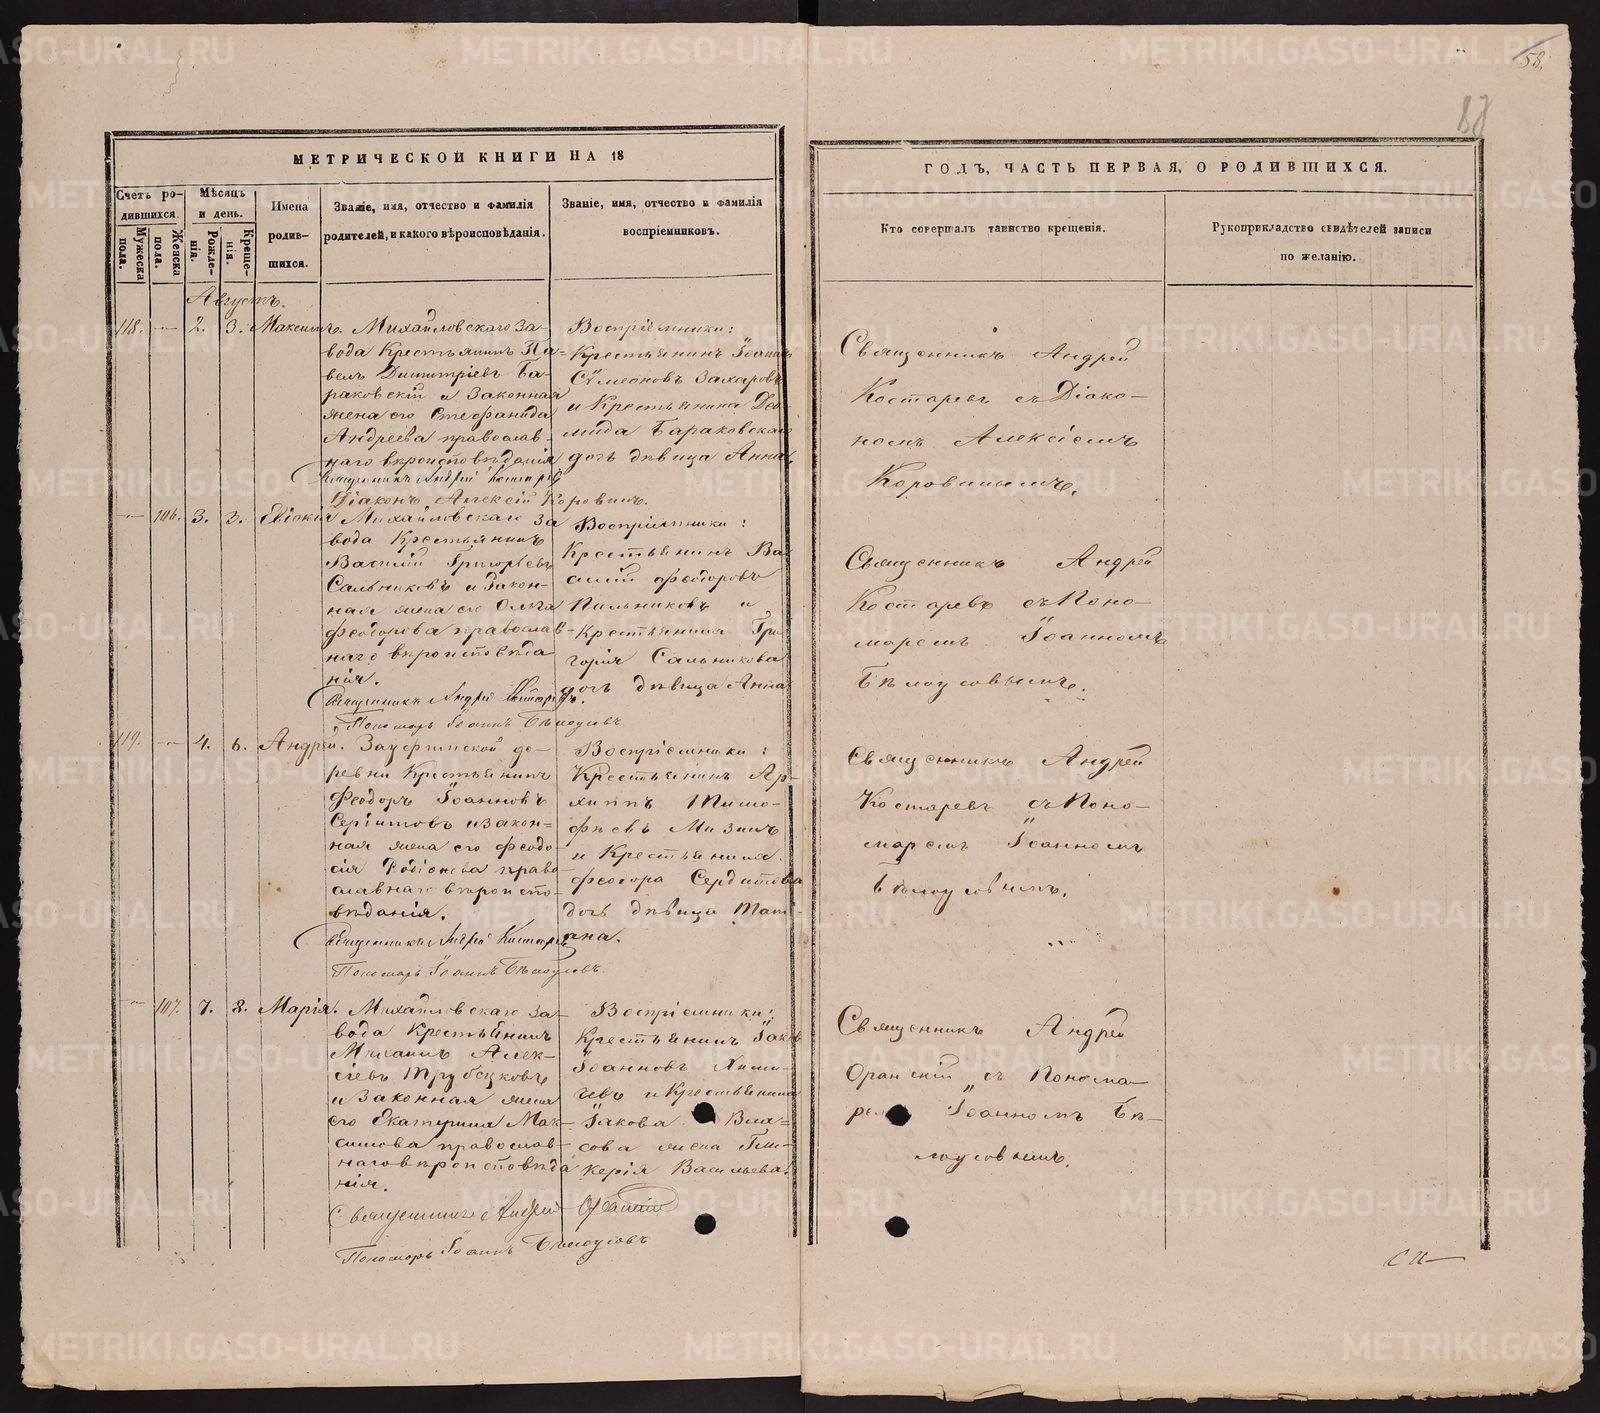 58.
МЕТРИЧЕСКОЙ КНИГИ НА 18
ГОДЪ, ЧАСТЬ ПЕРВАЯ, О РОДИВШИХСЯ.
Счетъ ро-
дившихся.
Мужеска
пола.
Женска
пола.
Мѣсяцъ
и день.
Рожде-
нія.
Креще-
нія.
Имена
родив-
шихся.
Званіе, имя, отчество и фамилія
родителей, и какого вѣроисповѣданія.
Званіе, имя, отчество и фамилія
воспріемниковъ.
Кто совершалъ таинство крещенія.
Рукоприкладство свидѣтелей записи
по желанію.
Августъ.
118. — 2. 3. Максимъ.
Михайловскаго за-
вода Крестьянинъ Па-
велъ Димитріевъ Ба-
раковскій и законная
жена его Стефанида
Андреева православ-
наго вѣроисповѣданія
Священникъ Андрей Костаревъ
Діаконъ Алексій Коровинъ.
Воспріемники:
Крестьянинъ Іоаннъ
Сѵмеоновъ Захаровъ
и Крестьянина Дио-
мида Бараковскаго
дочь дѣвица Анна
Священникъ Андрей
Костаревъ съ Діако-
номъ Алексіемъ
Коровинымъ.
— 106. 3. 3. Евдокія
Михайловскаго за
вода Крестьянинъ
Василій Григорьевъ
Сальниковъ и закон-
ная жена его Ольга
Феодорова православ-
наго вѣроисповѣда
нія.
Священникъ Андрей Костаревъ.
Пономарь Іоаннъ Бѣлоусовъ
Воспріемники:
Крестьянинъ Ва
силій Феодоровъ
Пильниковъ и
Крестьянина Гри
горія Сальникова
дочь дѣвица Анна
Священникъ Андрей
Костаревъ съ Поно-
маремъ Іоанномъ
Бѣлоусовымъ.
119. — 4. 6. Андрей.
Зауфимской де-
ревни Крестьянинъ
Феодоръ Іоанновъ
Сердитовъ и закон-
ная жена его Феодо-
сія Родіонова право-
славнаго вѣроиспо-
вѣданія.
Священникъ Андрей Костаревъ
Пономарь Іоаннъ Бѣлоусовъ.
Воспріемники:
Крестьянинъ Ар-
хиппъ Тимо-
феевъ Мизинъ
и Крестьянина
Феодора Сердитова
дочь дѣвица Тати-
ана.
Священникъ Андрей
Костаревъ съ Поно-
маремъ Іоанномъ
Бѣлоусовымъ.
— 107. 7. 8. Марія.
Михайловскаго за-
вода Крестьянинъ
Михаилъ Алек-
сіевъ Трубецковъ
и законная жена
его Екатерина Мак-
симова православ-
наго вѣроисповѣда
нія.
Священникъ Андрей Оранскій
Пономарь Іоаннъ Бѣлоусовъ
Воспріемники:
Крестьянинъ Іаковъ
Іоанновъ
и Крестьянина
Іакова Вла-
сова жена Гли-
керія Васильева.
Священникъ Андрей
Оранскій съ Понома-
ремъ Іоанномъ Бѣ-
лоусовымъ.
METRIKI.GASO-URAL.RU